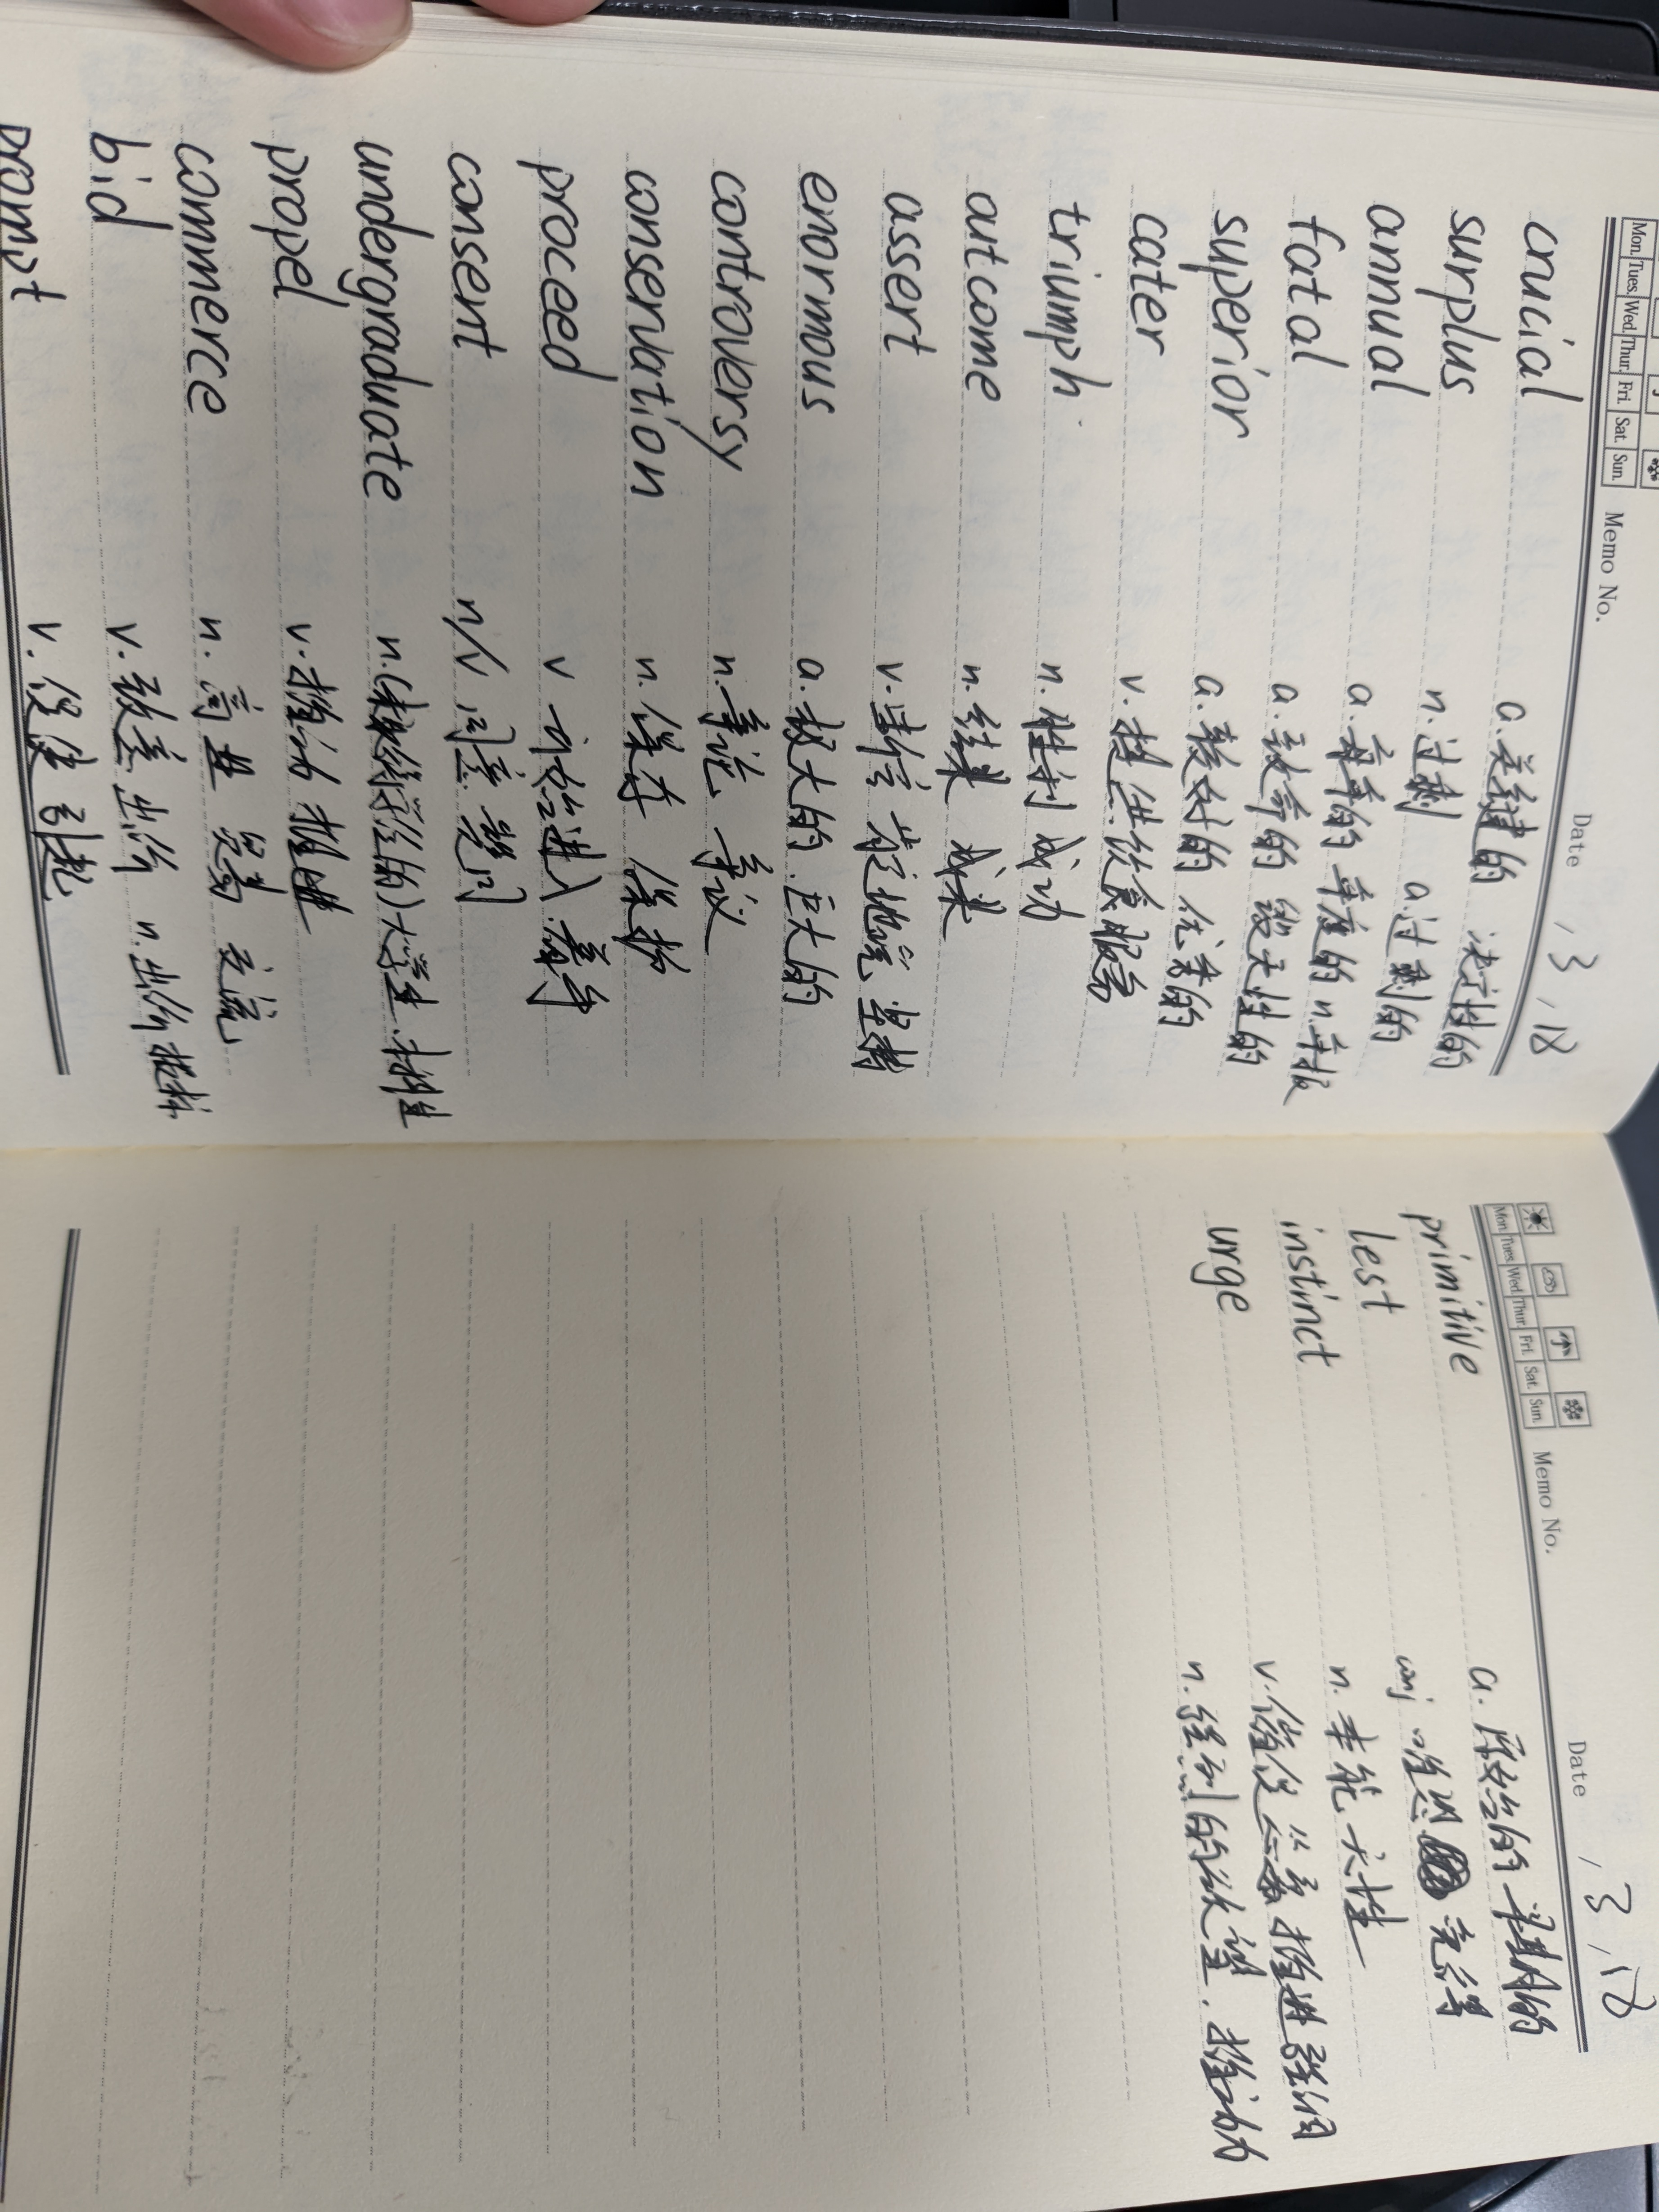 Mon. Tues. Wed. Thur. Fri. Sat. Sun.
Memo No.
Date / 3 / 18
crucial a.关键的 决定性的
surplus n.过剩 a.过剩的
annual a.每年的 年度的 n.年报
fatal a.致命的 毁灭性的
superior a.较好的 优秀的
cater v.提供饮食服务
triumph n.胜利 成功
outcome n.结果 成果
assert v.坚信 肯定地说 坚持
enormous a.极大的.巨大的
controversy n.争论 争议
conservation n.保存 保护
proceed v 开始 进入 着手
consent n/v 同意
undergraduate n.(未 学位的)大学生.本科生
propel v.推动 推进
commerce n.商业 贸易 交流
bid v.致意 出价 n.出价 投标
prompt v.促使 引起
Mon. Tues. Wed. Thur. Fri. Sat. Sun.
Memo No.
Date / 3 / 18
primitive a.原始的
lest conj 唯恐 免得
instinct n.本能.天性
urge v.催促 推进
n.强烈的欲望.推动力